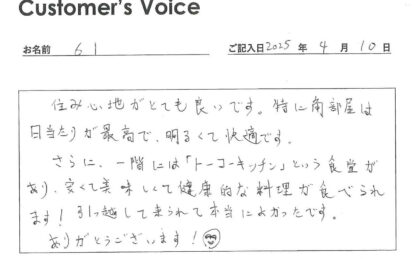 Customer's Voice
お名前 61 ご記入日2025年4月10日
住み心地がとても良いです。特に角部屋は
日当たりが最高で、明るくて快適です。
さらに、一階には「トーコーキッチン」という食堂が
あり、安くて美味しくて健康的な料理が食べられ
ます！引っ越して来られて本当によかったです。
ありがとうございます！